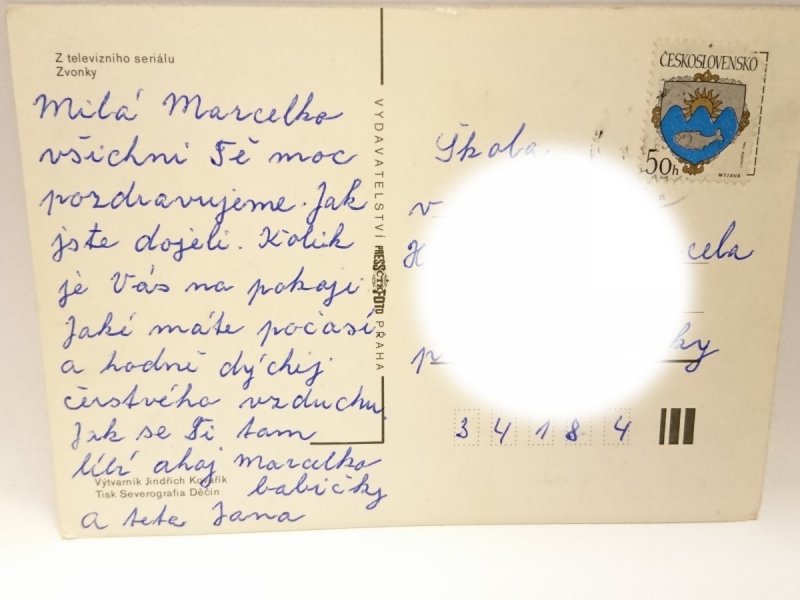 Z televizního seriálu
Zvonky
Milá Marcelko
všichni Tě moc
pozdravujeme. Jak
jste dojeli. Kolik
je Vás na pokoji
Jaké máte počasí
a hodně dýchej
čerstvého vzduchu.
Jak se Ti tam
líbí ahoj Marcelko
babičky
a teta Jana
Výtvarník Jindřich Kovařík
Tisk Severografia Děčín
VYDAVATELSTVÍ PRESSFOTO PRAHA
ČESKOSLOVENSKO
50h
MYJAVA
Škola
v
34184